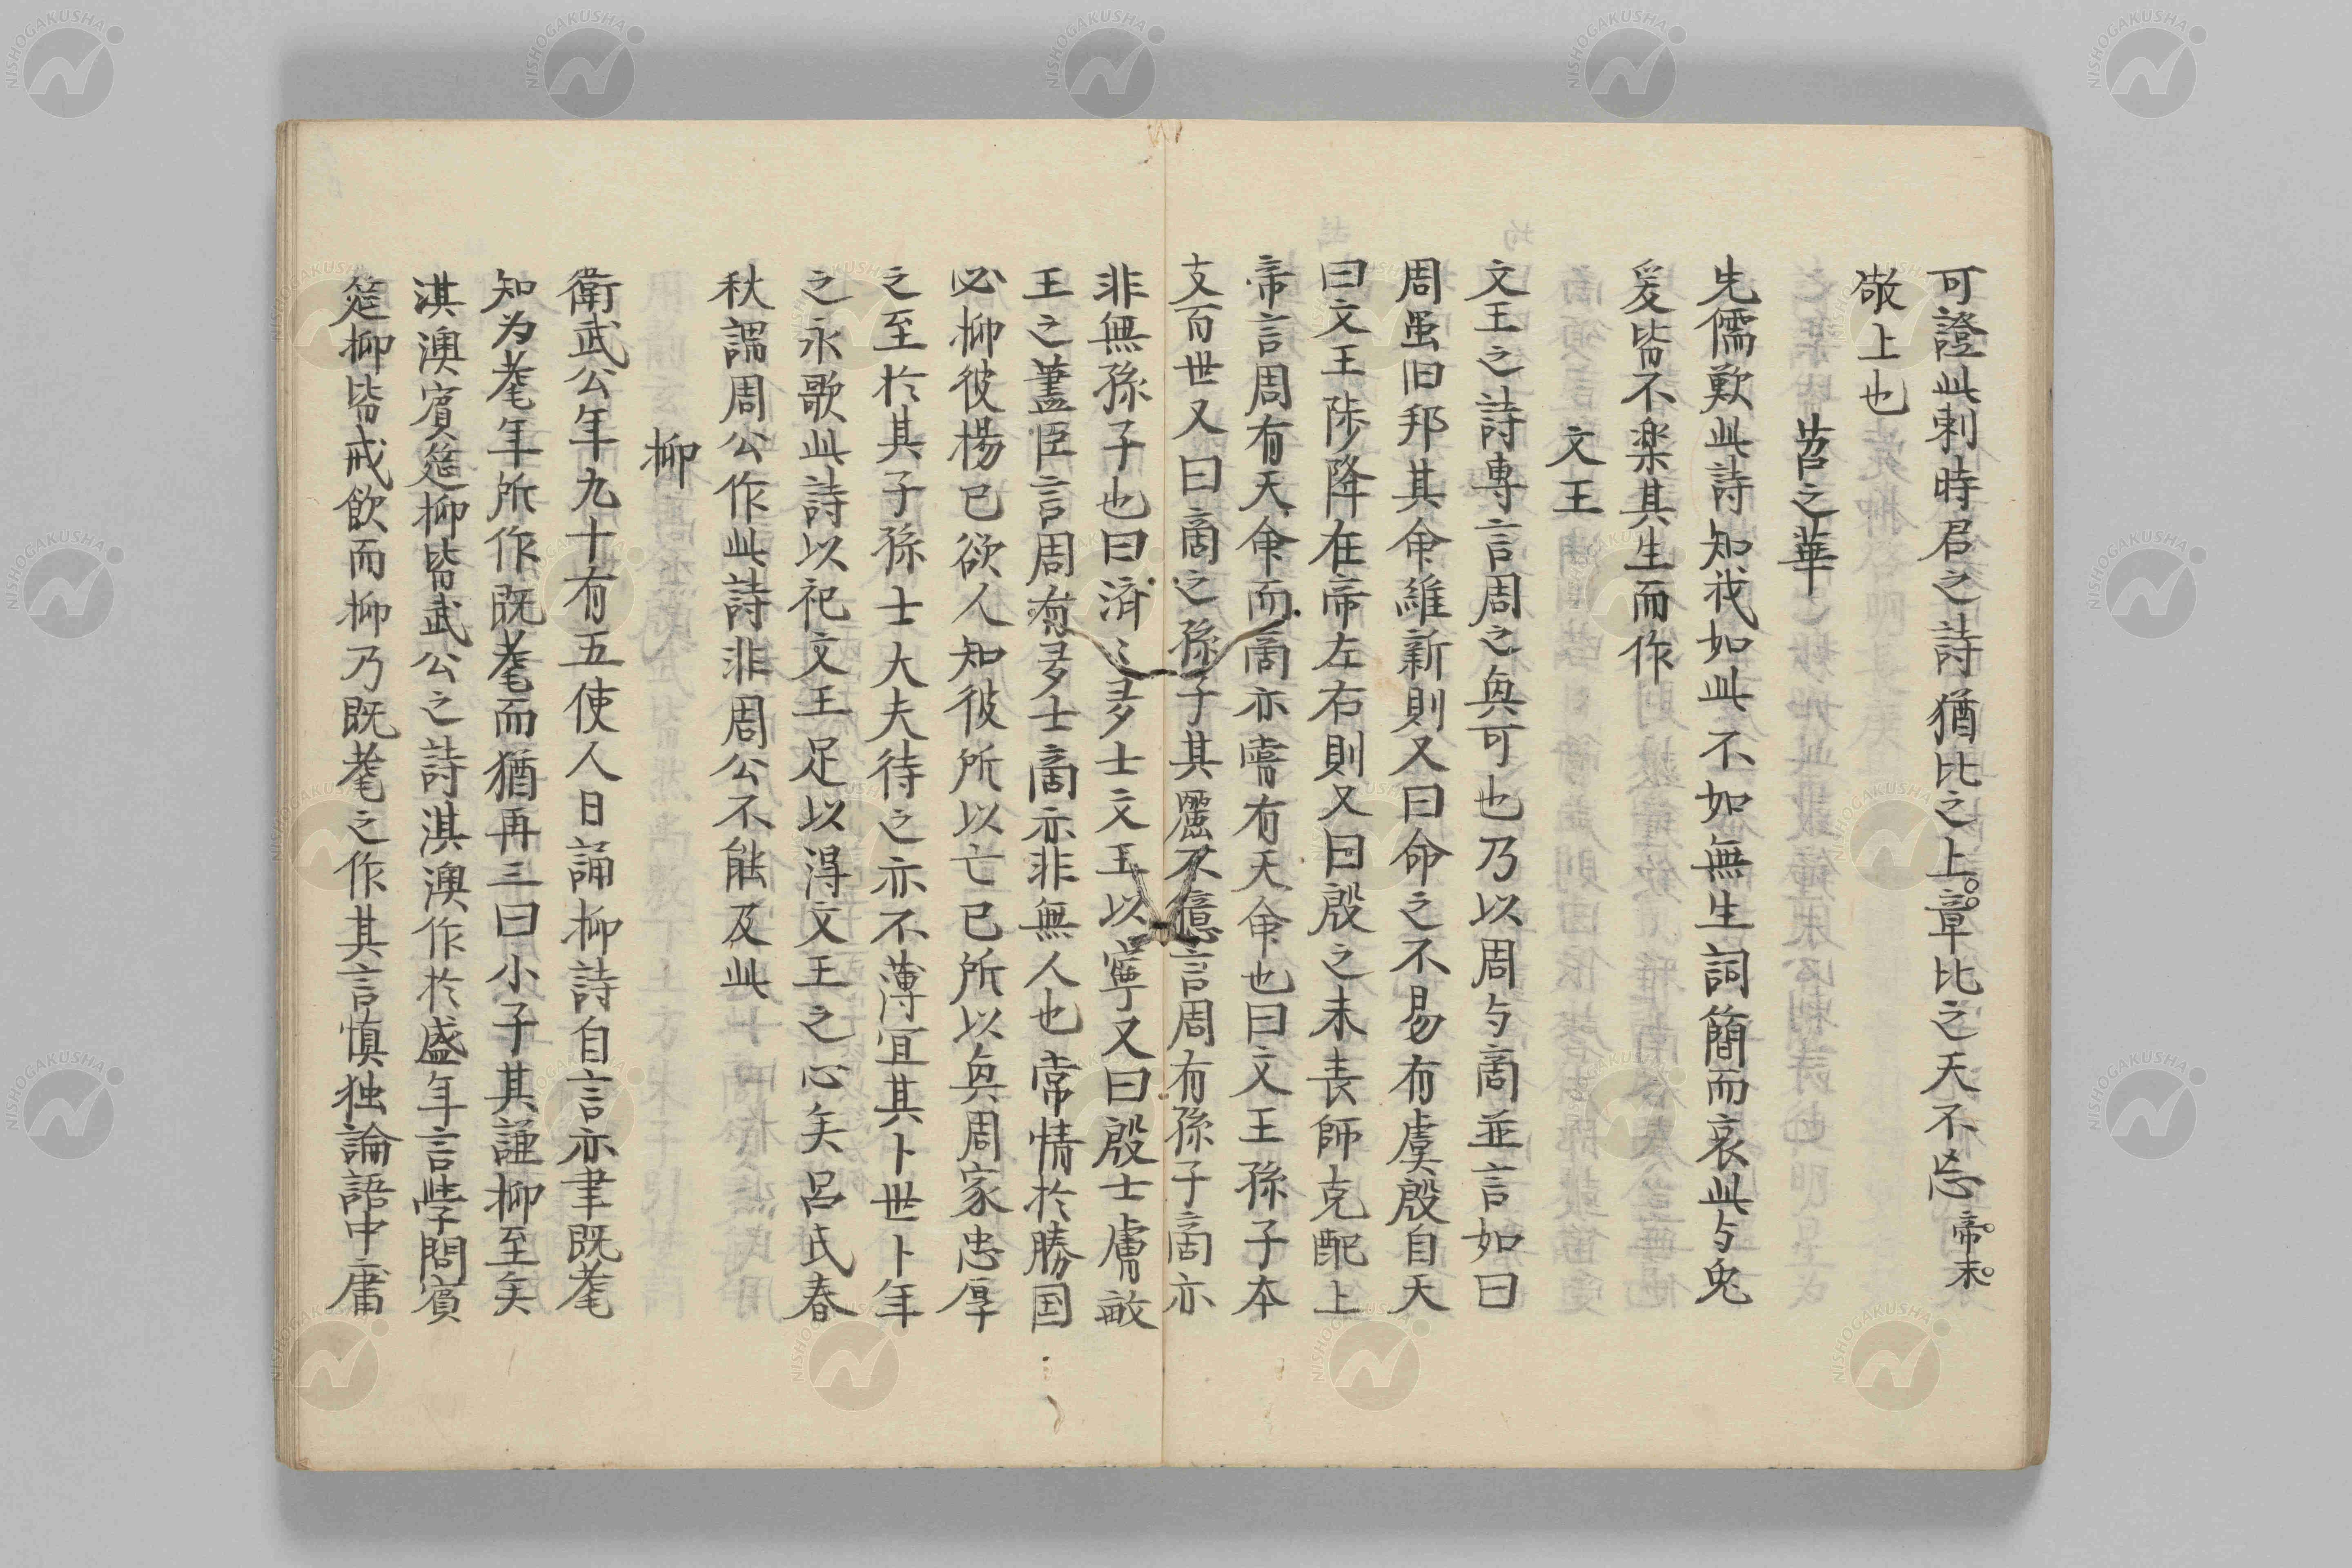 可證此刺時君之詩猶比之上章比之天不忘帝末
敬上也
苕之華
先儒歎此詩知我如此不如無生詞簡而哀此与兔
爰皆不楽其生而作
文王
文王之詩専言周之㒷可也乃以周与商並言如曰
周虽旧邦其命維新則又曰命之不易有虞殷自天
曰文王陟降在帝左右則又曰殷之未丧師克配上
帝言周有天命而商亦嘗有天命也曰文王孫子本
支百世又曰商之孫子其麗不億言周有孫子商亦
非無孫子也曰済〻多士文王以寧又曰殷士膚敏
王之藎臣言周有多士商亦非無人也常情於勝国
必抑彼揚已欲人知彼所以亡已所以㒷周家忠厚
之至於其子孫士大夫待之亦不薄宜其卜世卜年
之永歌此詩以祀文王足以得文王之心矣呂氏春
秋謂周公作此詩非周公不能及此
抑
衛武公年九十有五使人日誦抑詩自言亦聿既耄
知为耄年所作既耄而猶再三曰小子其謹抑至矣
淇澳賓筵抑皆武公之詩淇澳作於盛年言学問賓
筵抑皆戒飲而抑乃既耄之作其言慎独論語中庸
NISHOGAKUSHA